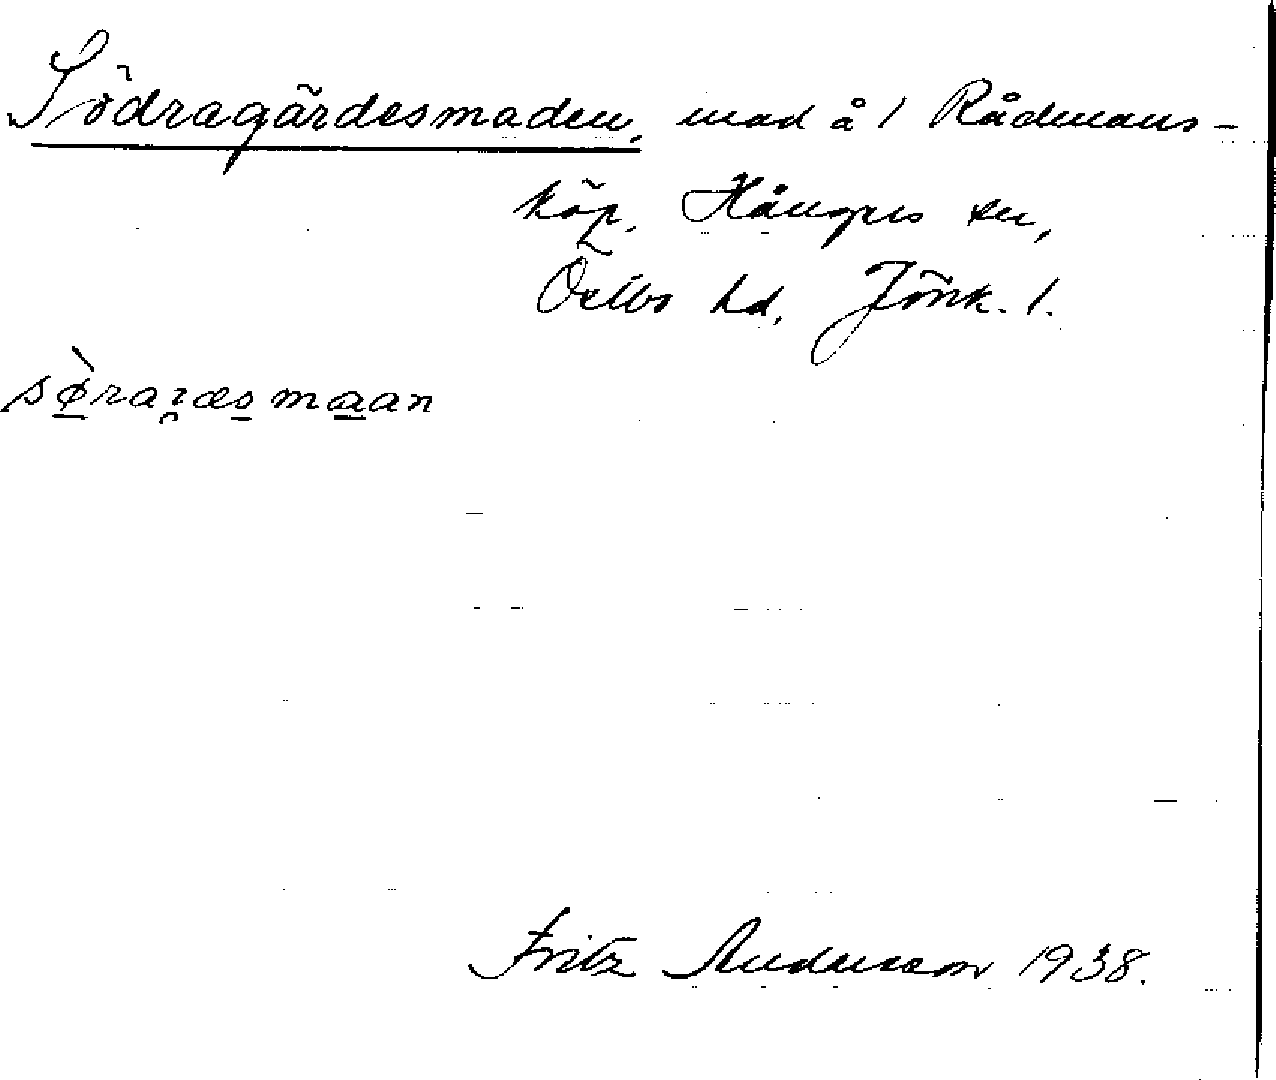 Södragärdesmaden, mad å 1 Rådmans-
köp, Hångers sn,
Östbo hd, Jönk. l.
sø̀raɿæsmaan
Fritz Andersson 1938.